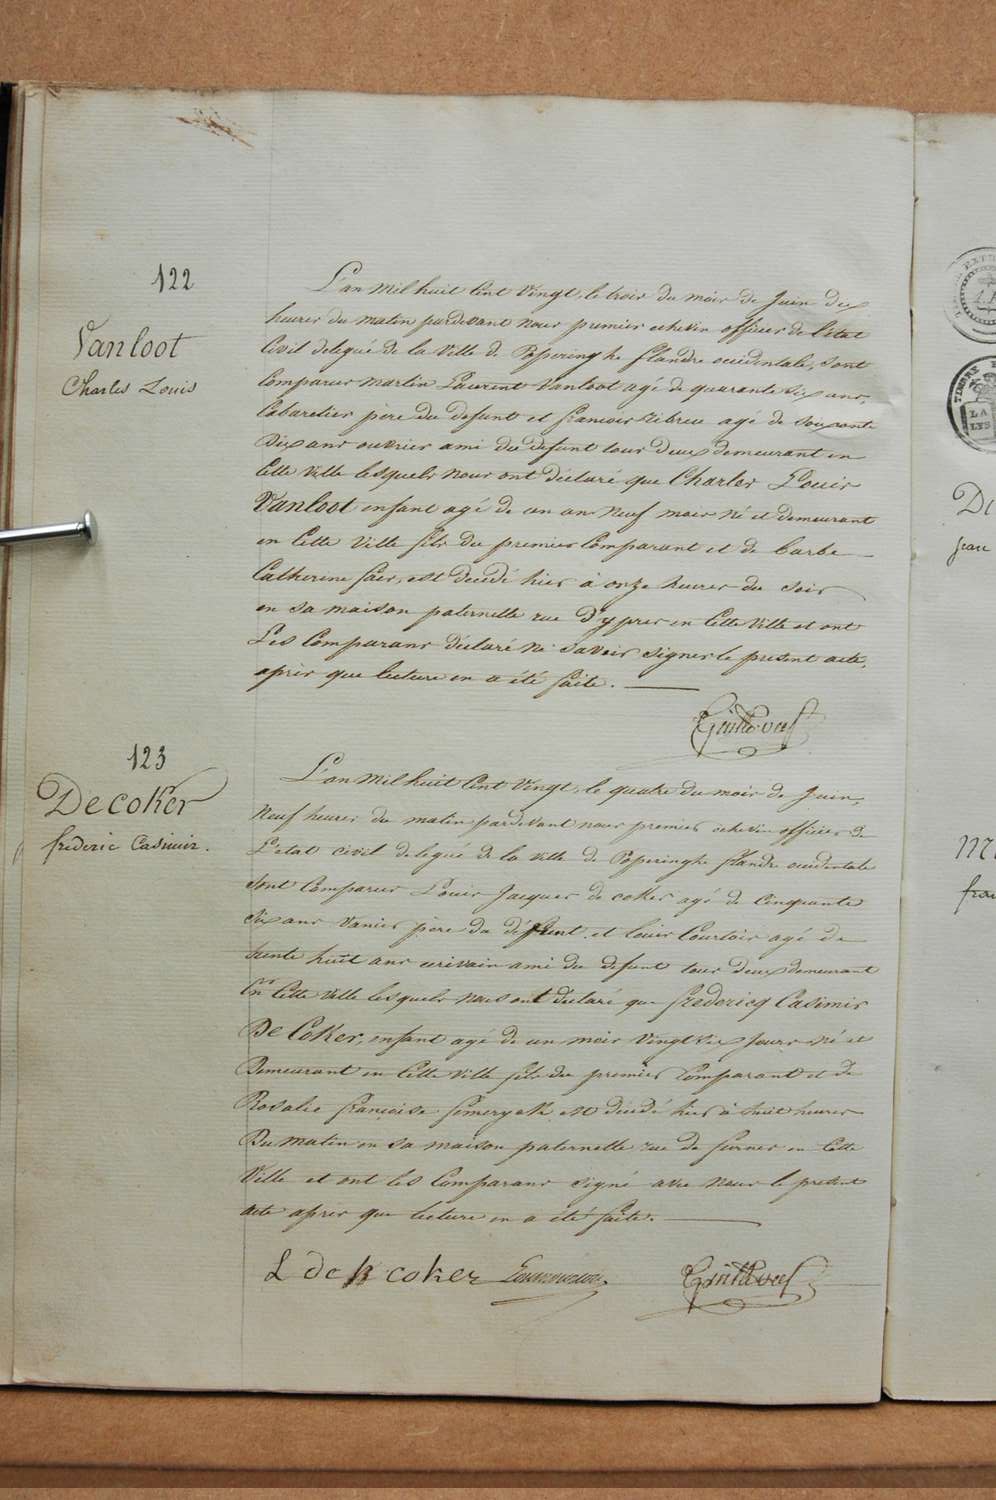 122
Vanloot
Charles Louis
L'an mil huit cent vingt, le trois du mois de Juin dix
heures du matin pardevant nous premier echevin officier de l'etat
Civil delegué de la Ville de Poperinghe flandre occidentale, sont
Comparus martin Laurent Vanloot agé de quarante six ans,
Cabaretier père du defunt et francois agé de soixante
dix ans ouvrier ami du defunt tous deux demeurant en
Cette Ville lesquels nous ont déclaré que Charles Louis
Vanloot enfant agé de un an neuf mois né et demeurant
en Cette Ville fils du premier Comparant et de barbe
Catherine est decedé hier à onze heures du soir
en sa maison paternelle rue d'ypres en Cette Ville et ont
Les Comparans déclaré ne savoir signer le present acte,
après que lecture en a été faite.
123
De coker
frederic Casimir.
L'an mil huit Cent vingt, le quatre du mois de Juin,
Neuf heures du matin pardevant nous premier echevin officier de
L'etat civil delegué de la ville de Poperinghe flandre occidentale
sont Comparus Louis Jacques de coker agé de Cinquante
six ans Vanier père du défunt et louis Courtois agé de
trente huit ans ecrivain ami du defunt tous deux demeurant
En Cette Ville lesquels nous ont déclaré que fredericq Casimir
De Coker, enfant agé de un mois vingt six jours né et
Demeurant en Cette Ville fils du premier Comparant et de
Rosalie francoise est décédé hier à huit heures
Du matin en sa maison paternelle rue de furnes en Cette
Ville et ont les Comparans signé avec nous le present
acte après que lecture en a été faite.
L de k coker
TIMBRE
LA
LYS